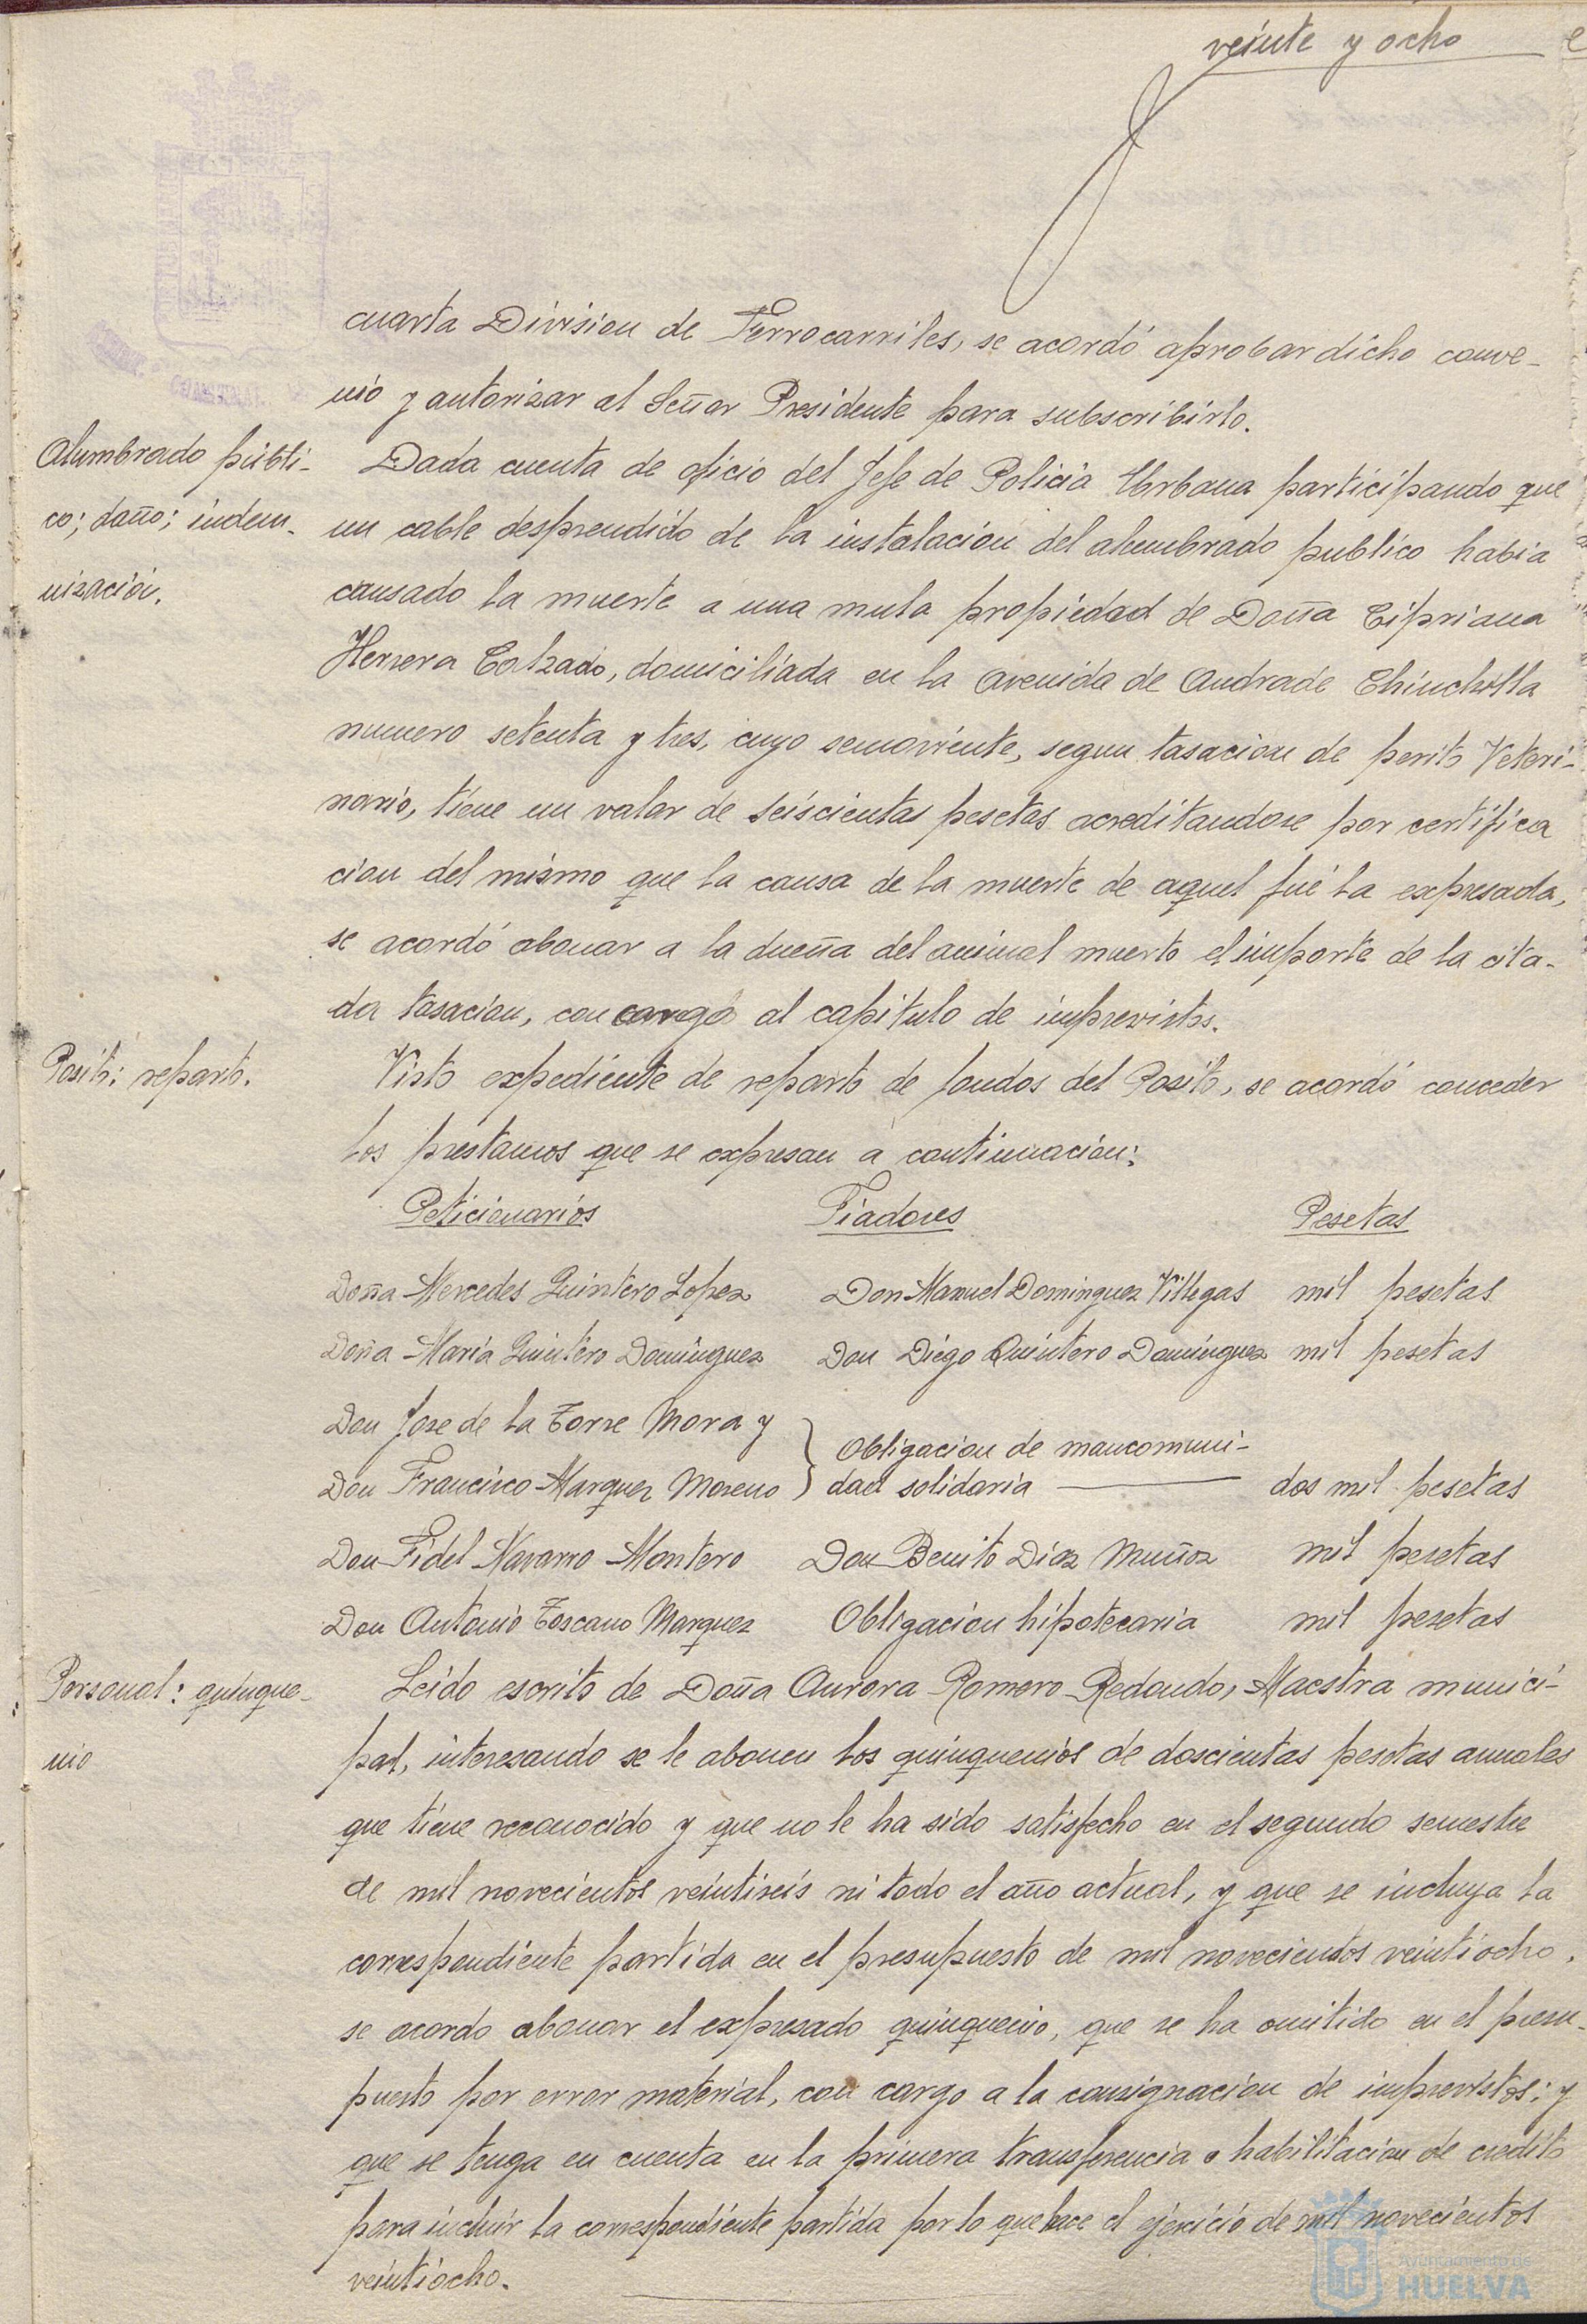 veinte y ocho
cuarta Division de Ferrocarriles, se acordó aprobar dicho conve-
nio y autorizar al Señor Presidente para subscribirlo.
Alumbrado públi-
co; daño; indem-
nización.
Dada cuenta de oficio del Jefe de Policia Urbana participando que
un cable desprendido de la instalación del alumbrado publico habia
causado la muerte a una mula propiedad de Doña Cipriana
Herrera Calzado, domiciliada en la Avenida de Andrade Chinchilla
numero setenta y tres, cuyo semoviente, segun tasacion de perito Veteri-
nario, tiene un valor de seiscientas pesetas acreditandose por certifica
cion del mismo que la causa de la muerte de aquel fué la expresada,
se acordó abonar a la dueña del animal muerto el importe de la cita-
da tasacion, con cargo al capitulo de imprevistos.
Posito: reparto.
Visto expediente de reparto de fondos del Posito, se acordó conceder
los prestamos que se expresan a continuacion:
Peticionarios Fiadores Pesetas
Doña Mercedes Quintero Lopez Don Manuel Dominguez Villegas mil pesetas
Doña Maria Quintero Dominguez Don Diego Quintero Dominguez mil pesetas
Don Jose de la Torre Mora y
Don Francisco Marquez Moreno
Obligacion de mancomuni-
dad solidaria dos mil pesetas
Don Fidel Navarro Montero Don Benito Diaz Muñoz mil pesetas
Don Antonio Toscano Marquez Obligacion hipotecaria mil pesetas
Personal: quinque-
nio
Leido escrito de Doña Aurora Romero Redondo, Maestra munici-
pal, interesando se le abonen los quinquenios de doscientas pesetas anuales
que tiene reconocido y que no le ha sido satisfecho en el segundo semestre
de mil novecientos veintiseis ni todo el año actual, y que se incluya la
correspondiente partida en el presupuesto de mil novecientos veintiocho,
se acordo abonar el expresado quinquenio, que se ha omitido en el presu-
puesto por error material, con cargo a la consignacion de imprevistos; y
que se tenga en cuenta en la primera transferencia o habilitacion de credito
para incluir la correspondiente partida por lo que hace el ejercicio de mil novecientos
veintiocho.
Ayuntamiento de
HUELVA